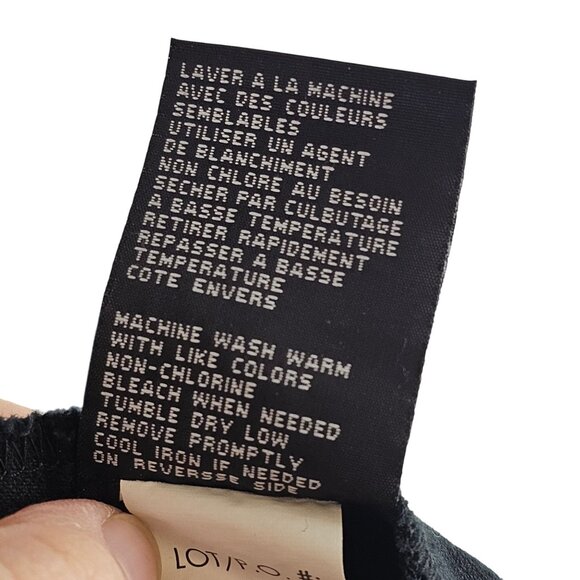 LAVER A LA MACHINE
AVEC DES COULEURS
SEMBLABLES
UTILISER UN AGENT
DE BLANCHIMENT
NON CHLORE AU BESOIN
SECHER PAR CULBUTAGE
A BASSE TEMPERATURE
RETIRER RAPIDEMENT
REPASSER A BASSE
TEMPERATURE
COTE ENVERS
MACHINE WASH WARM
WITH LIKE COLORS
NON-CHLORINE
BLEACH WHEN NEEDED
TUMBLE DRY LOW
REMOVE PROMPTLY
COOL IRON IF NEEDED
ON REVERSSE SIDE
LOT/P.O. #: